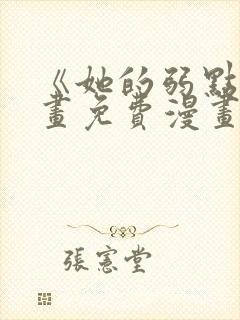 《她的弱點
畫免費漫畫
張憲堂